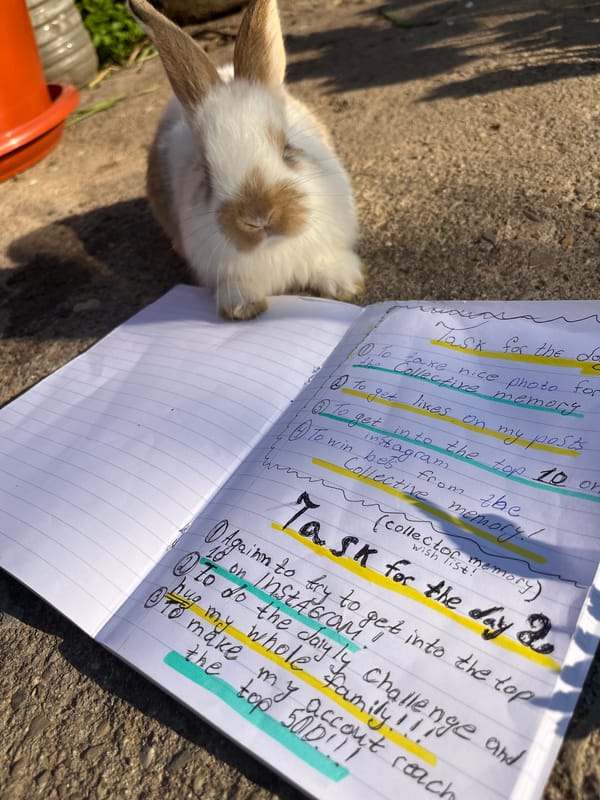 Task for the da
① To take nice photo for
the Collective memory
② To get likes on my posts
③ To get into the top 10 on
instagram
④ To win bet from the
Collective memory!
(collector memory)
wish list!
Task for the day 2
① Againn to try to get into the top
10 on INSTAGRAM!
② To do the dayly challenge and
hug my whole family!!!
③ To make my account reach
the top 500!!!